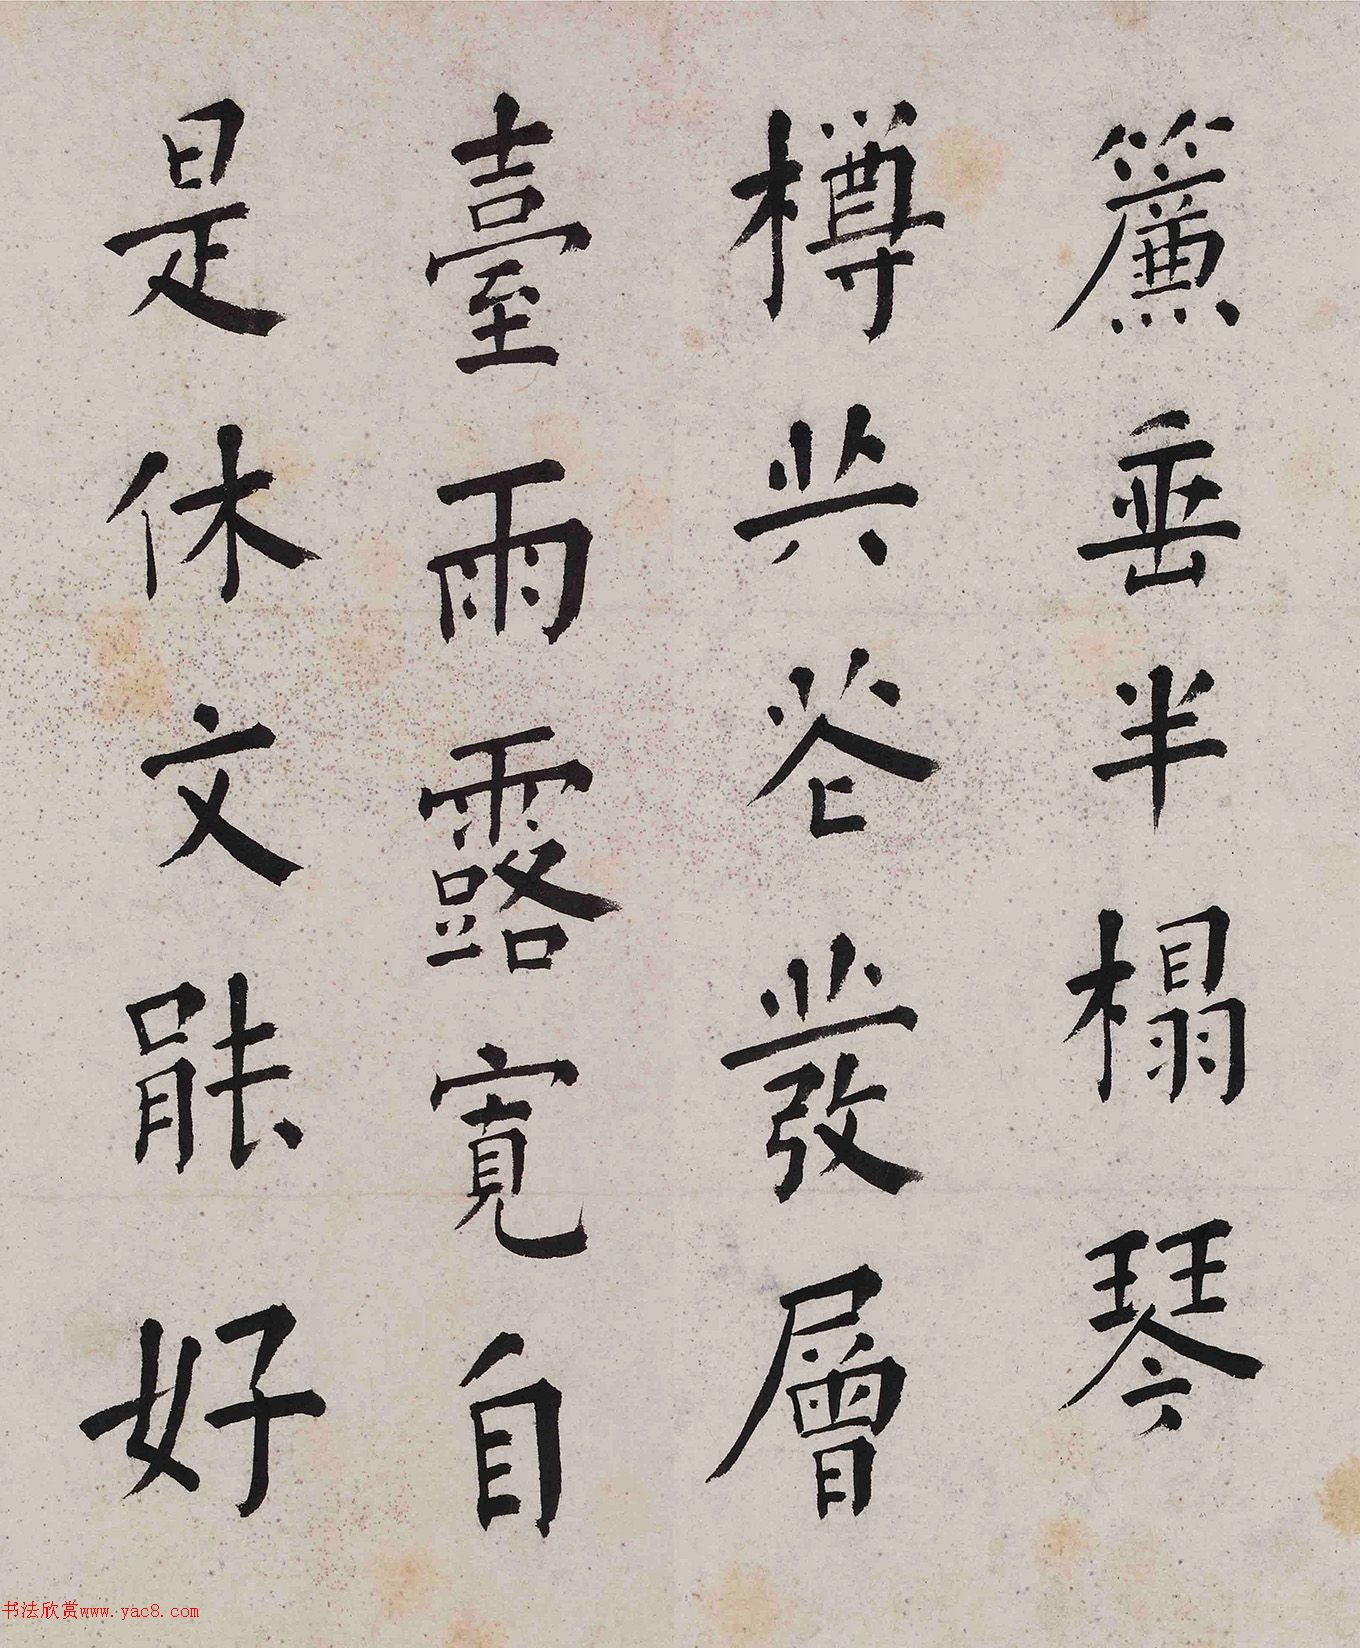 簾垂半榻琴
樽共花發層
臺雨露寬自
是休文能好
书法欣赏www.yac8.com